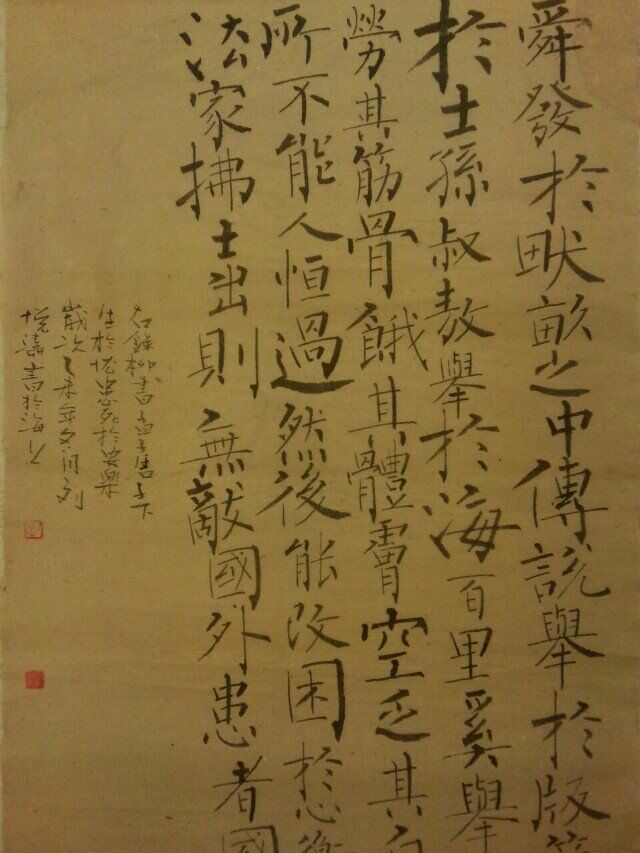 舜發於畎畝之中傅説舉於版築
於士孫叔敖舉於海百里奚舉
勞其筋骨餓其體膚空乏其身
所不能人恒過然後能改困於心衡
法家拂士出則無敵國外患者國
右錄柳書孟子告子下
生於憂患死於安樂
歲次乙未年冬月刘
悦濤書於海上